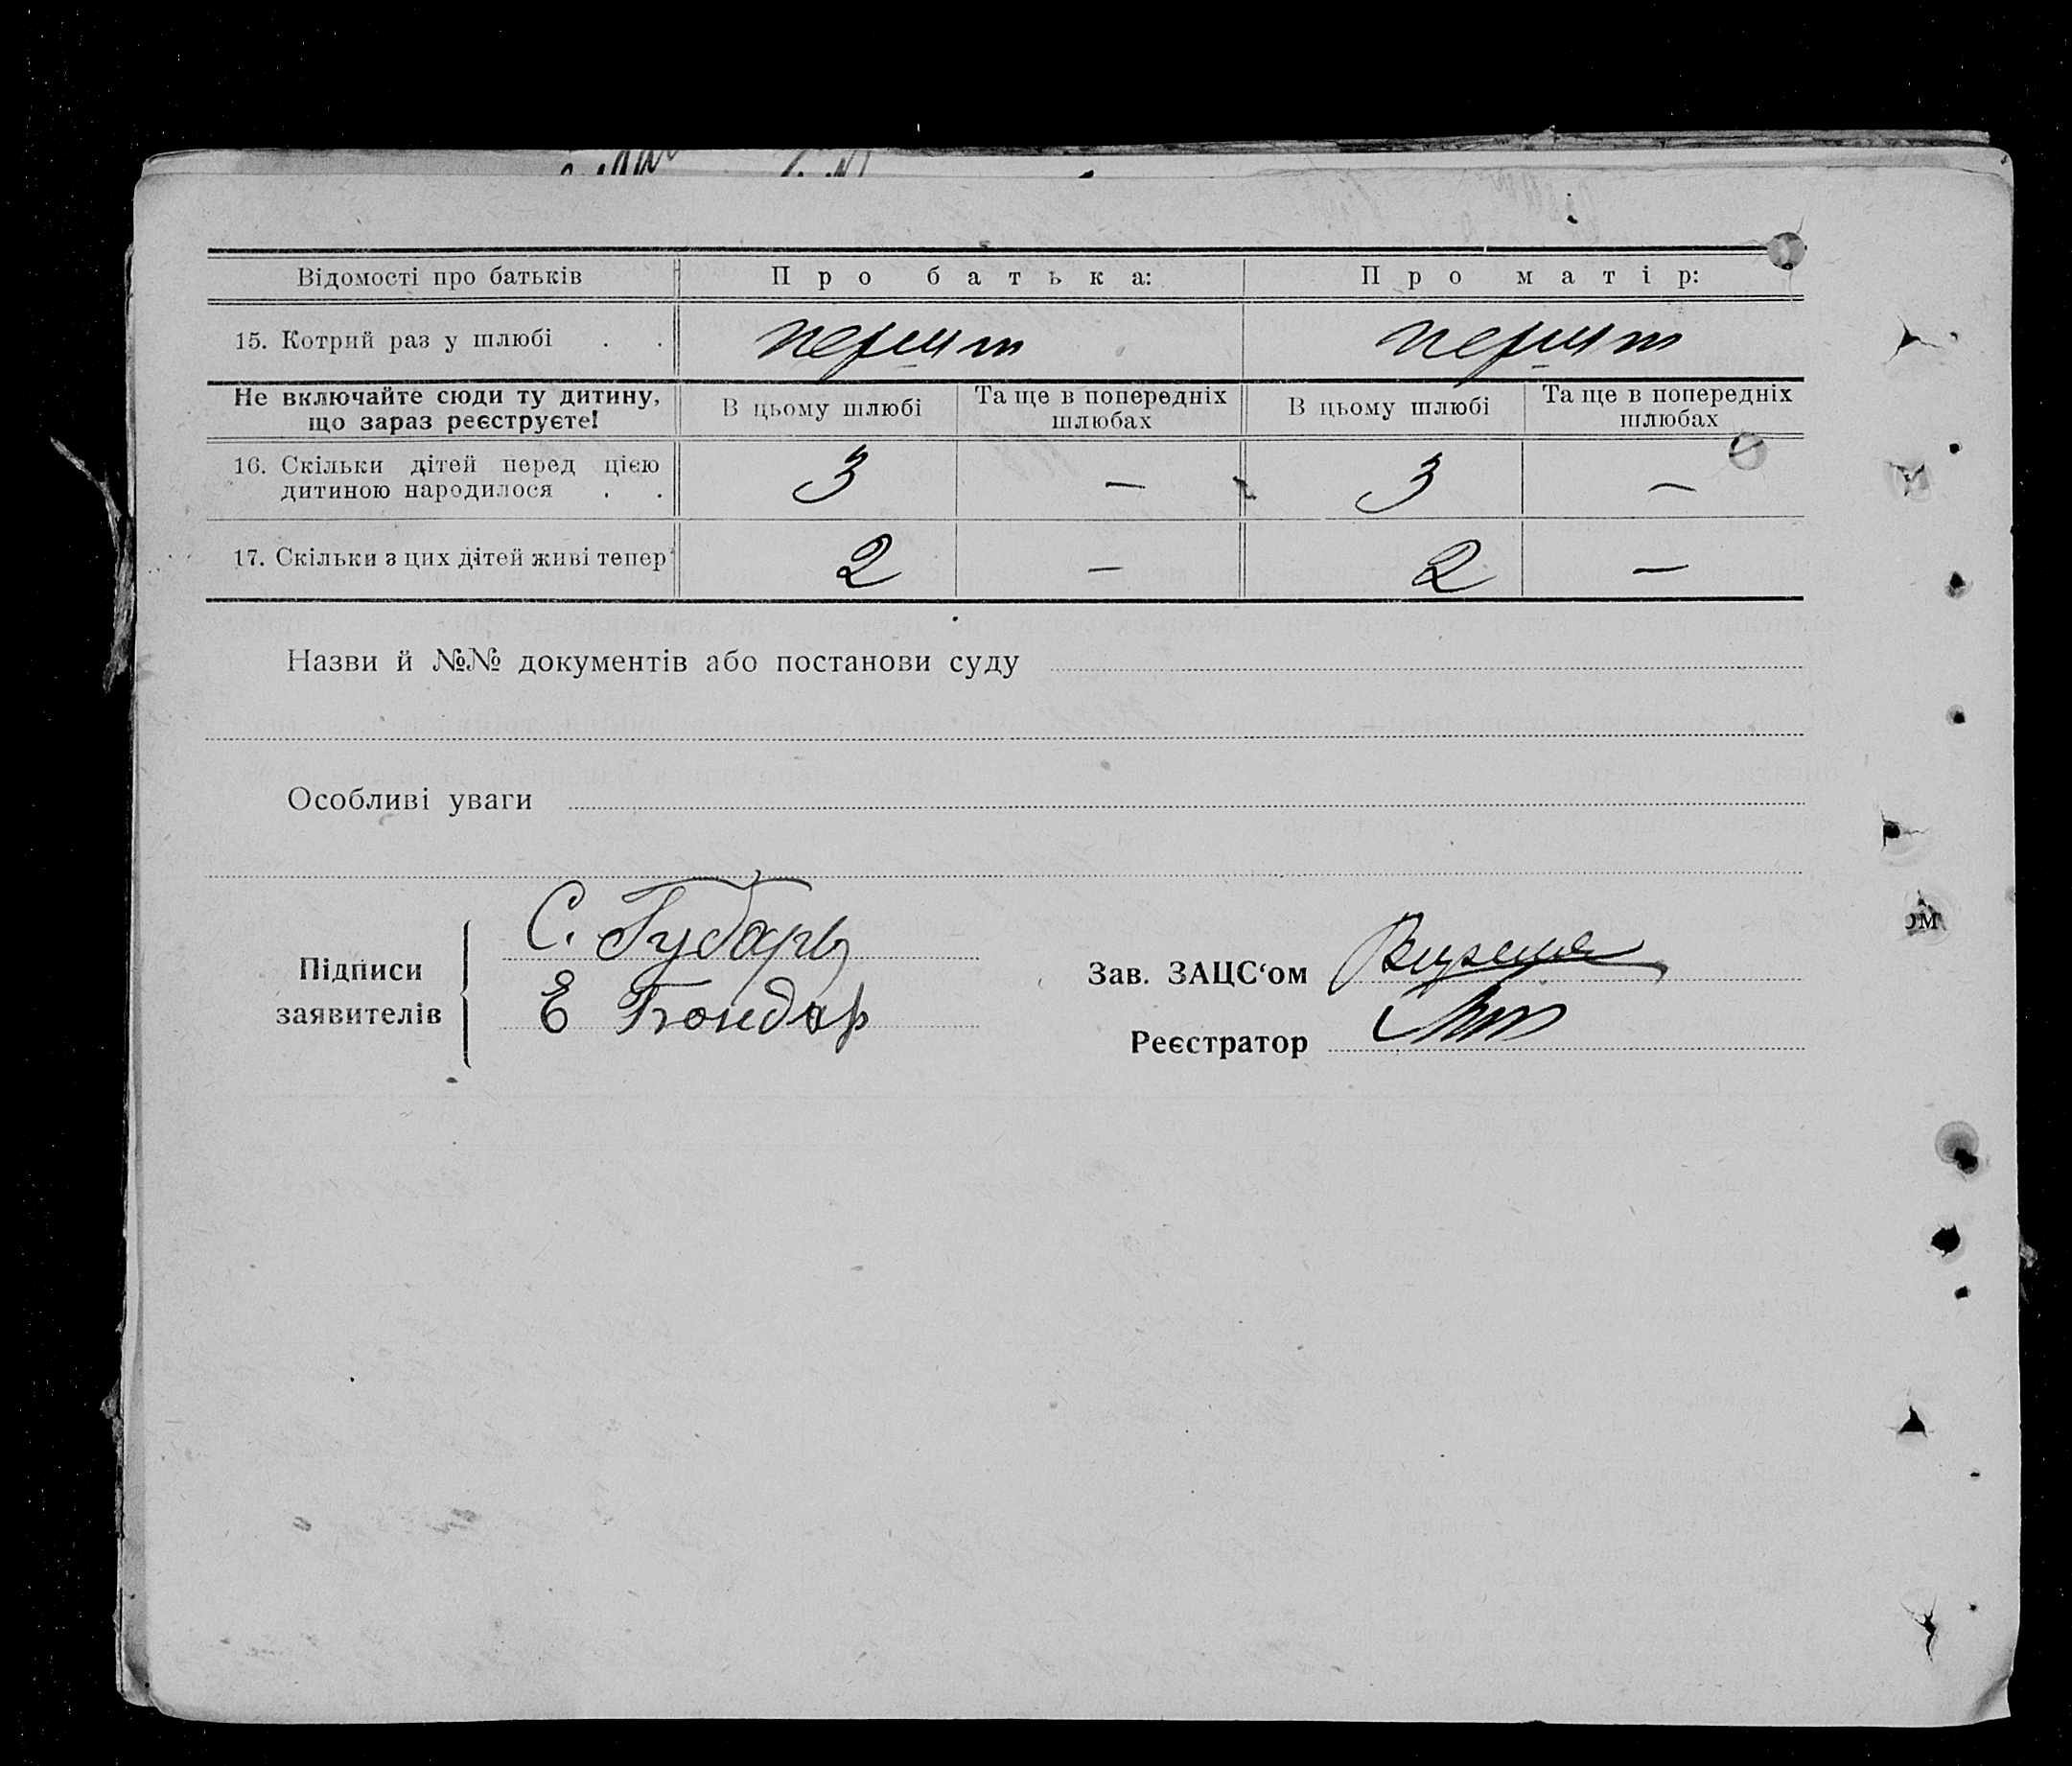 Відомості про батьків Про батька: Про матір:
15. Котрий раз у шлюбі . . перший перший
Не включайте сюди ту дитину, що зараз реєструєте! В цьому шлюбі Та ще в попередніх шлюбах В цьому шлюбі Та ще в попередніх шлюбах
16. Скільки дітей перед цією
дитиною народилося . . 3 — 3 —
17. Скільки з цих дітей живі тепер 2 — 2 —
Назви й №№ документів або постанови суду
Особливі уваги
Підписи заявителів
С. Губарь
Е Бондар
Зав. ЗАЦС‘ом
Реєстратор
ом